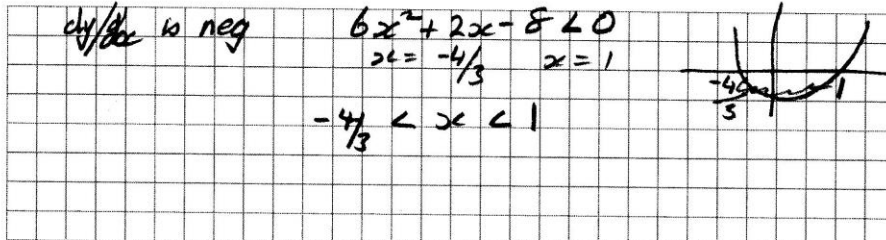 dy/dx is neg 6x² + 2x - 8 < 0
x = -4/3 x = 1
-4/3 1
-4/3 < x < 1